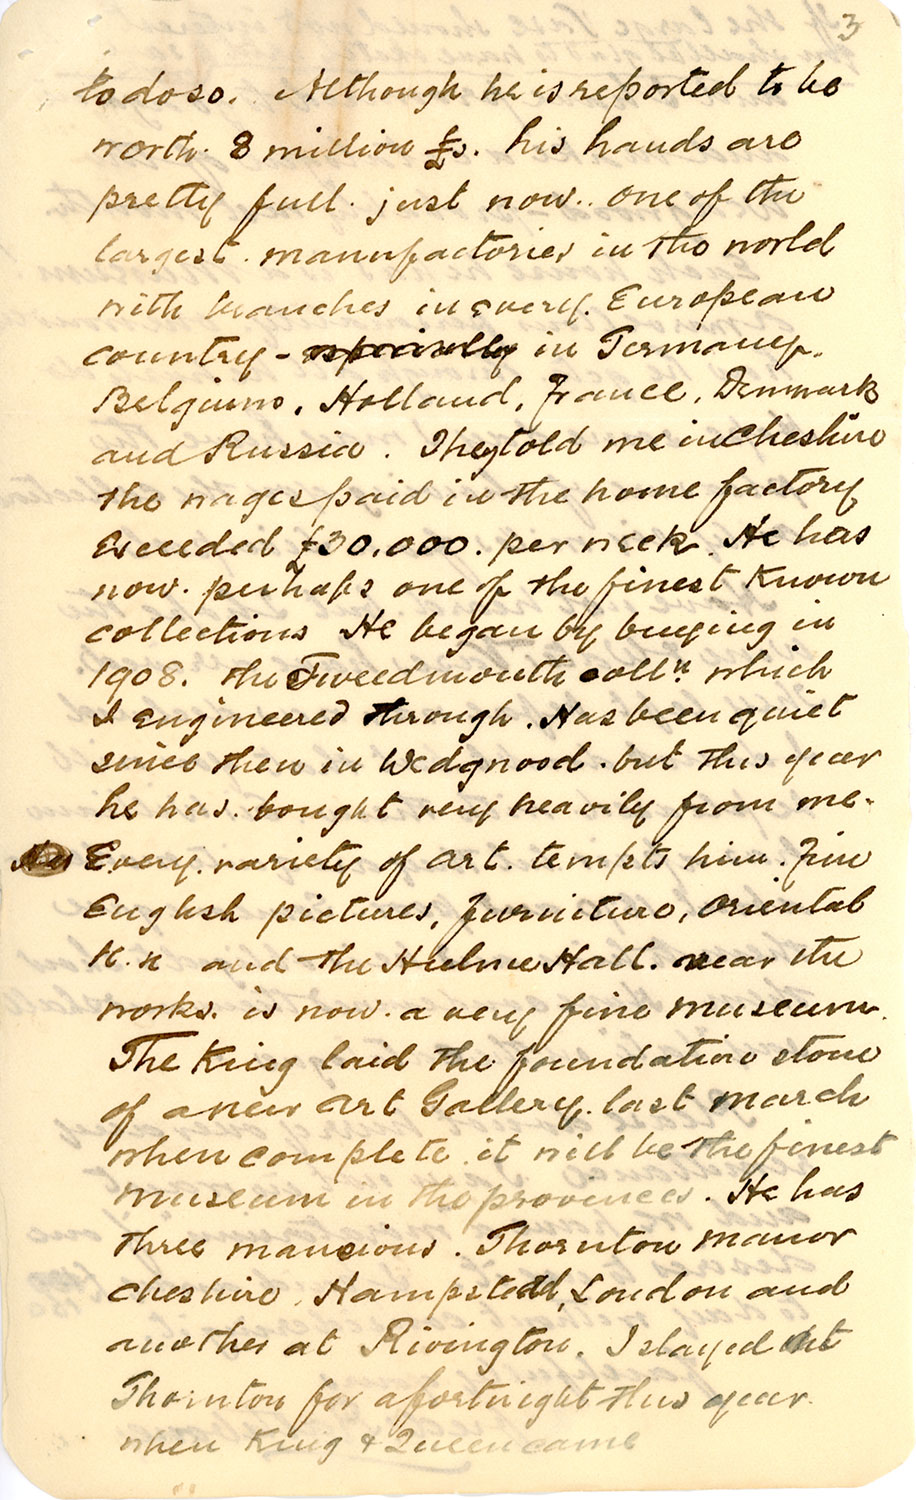 3
to do so. Although he is reported to be
worth 8 million £s. his hands are
pretty full just now.. one of the
largest manufactories in the world
with branches in every European
country - especially in Germany.
Belgium, Holland, France, Denmark
and Russia. They told me in Cheshire
the wages paid in the home factory
exceeded £30,000. per week. He has
now perhaps one of the finest known
collections He began by buying in
1908. the Tweedmouth colln. which
I engineered through. Has been quiet
since then in Wedgwood. but this year
he has bought very heavily from me.
Every variety of art tempts him. Fine
English pictures, furniture, oriental
and the Hulme Hall. near the
works. is now a very fine museum.
The King laid the foundation stone
of a new Art Gallery last march
when complete it will be the finest
museum in the provinces. He has
three mansions. Thornton manor
Cheshire, Hampstedd, London and
another at Rivington. I stayed at
Thornton for a fortnight this year
when King & Queen came